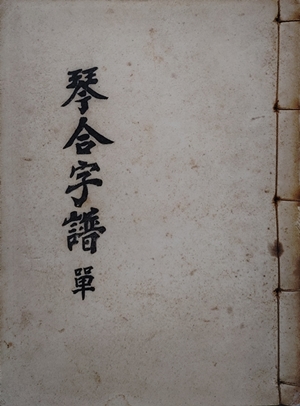 琴合字譜 單